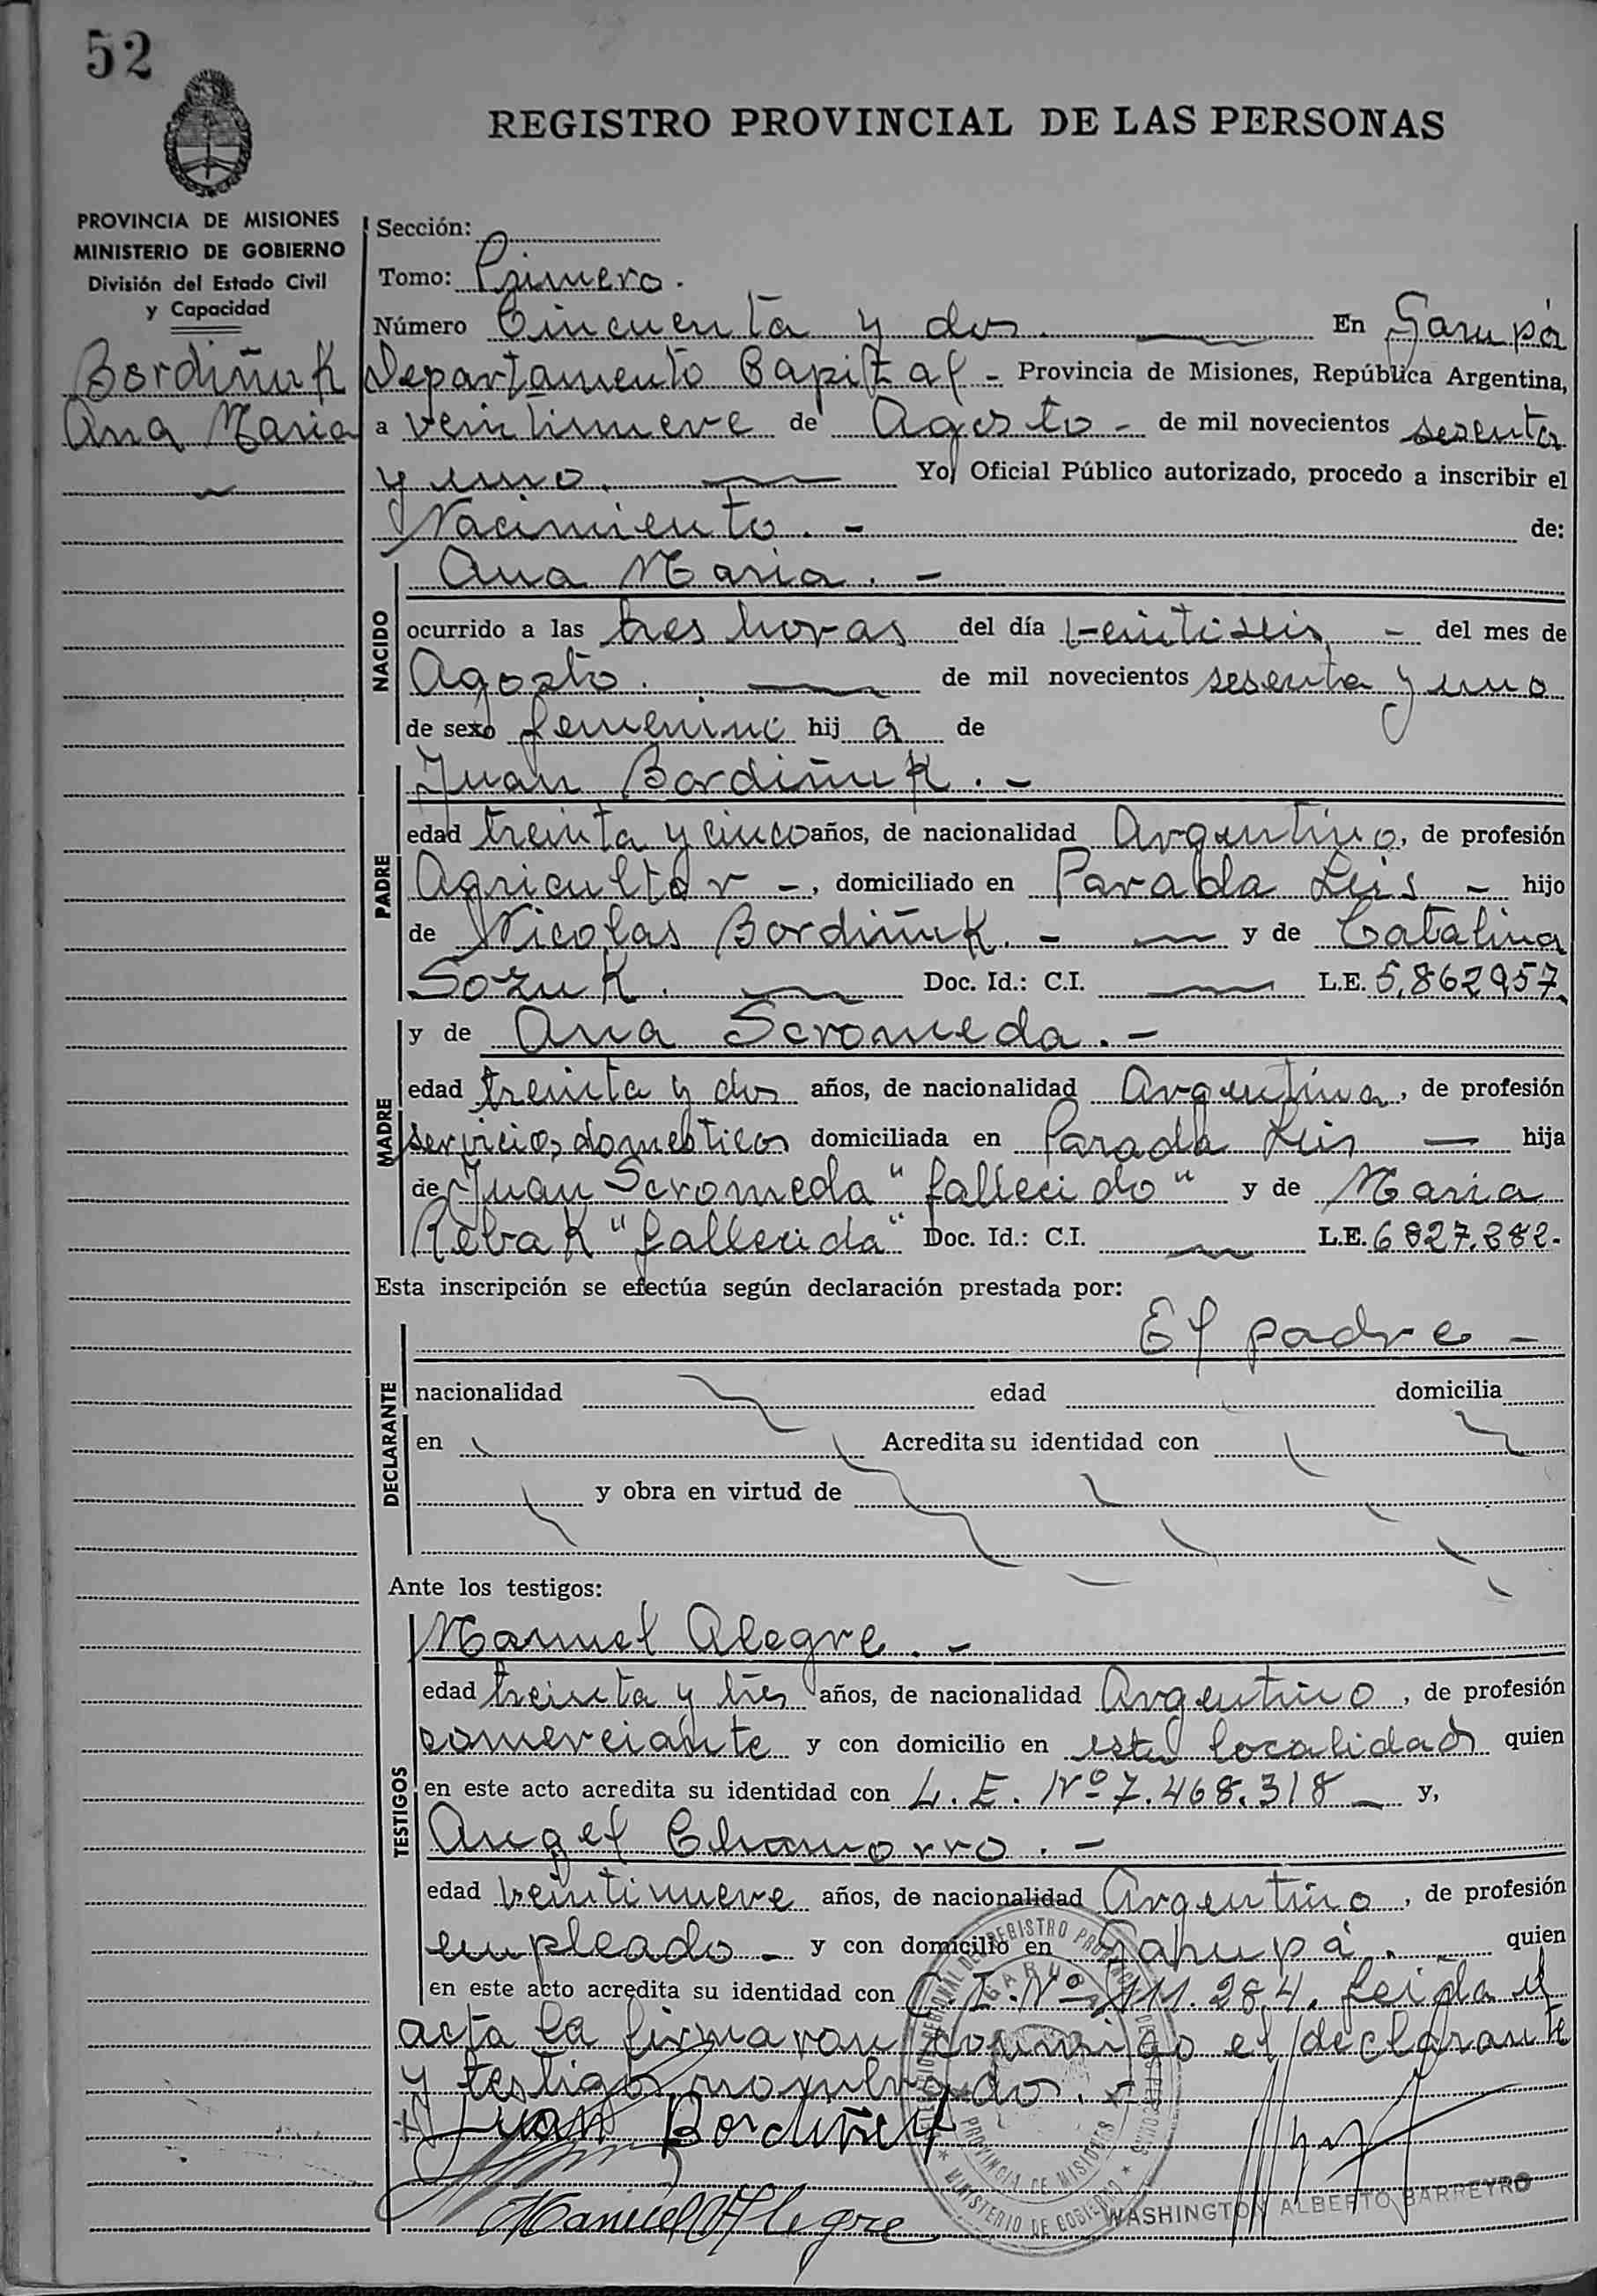 52
REGISTRO PROVINCIAL DE LAS PERSONAS
PROVINCIA DE MISIONES
MINISTERIO DE GOBIERNO
División del Estado Civil
y Capacidad
Bordiñuk
Ana Maria
Sección:
Tomo: Primero.
Número Cincuenta y dos. En Garupá
Departamento Capital - Provincia de Misiones, República Argentina,
a veintinueve de Agosto - de mil novecientos sesenta
y uno. Yo, Oficial Público autorizado, procedo a inscribir el
Nacimiento. - de:
NACIDO
Ana Maria. -
ocurrido a las tres horas del día veintiseis - del mes de
Agosto. de mil novecientos sesenta y uno
de sexo femenino hij a de
PADRE
Juan Bordiñuk. -
edad treinta y cinco años, de nacionalidad Argentino, de profesión
Agricultor -, domiciliado en Parada Leis - hijo
de Nicolas Bordiñuk. - y de Catalina
Sozuk. Doc. Id.: C.I. L.E. 5.862957.
MADRE
y de Ana Scromeda. -
edad treinta y dos años, de nacionalidad Argentina, de profesión
servicios domesticos domiciliada en Parada Leis - hija
de Juan Scromeda "fallecido" y de Maria
Rebak "fallecida" Doc. Id.: C.I. L.E. 6827.282.-
Esta inscripción se efectúa según declaración prestada por:
DECLARANTE
El padre -
nacionalidad edad domicilia
en Acredita su identidad con
y obra en virtud de
Ante los testigos:
TESTIGOS
Manuel Alegre. -
edad treinta y tres años, de nacionalidad Argentino, de profesión
comerciante y con domicilio en esta localidad quien
en este acto acredita su identidad con L.E. Nº 7.468.318 - y,
Angel Chamorro. -
edad veintinueve años, de nacionalidad Argentino, de profesión
empleado - y con domicilio en Garupá. - quien
en este acto acredita su identidad con C.I. Nº 111.284. Leida el
acta la firmaron conmigo el declarante
y testigos nombrados. -
Juan Bordiñuk
Manuel Alegre
GARUPA
PROVINCIA DE MISIONES
MINISTERIO DE GOBIERNO
WASHINGTON ALBERTO BARREYRO